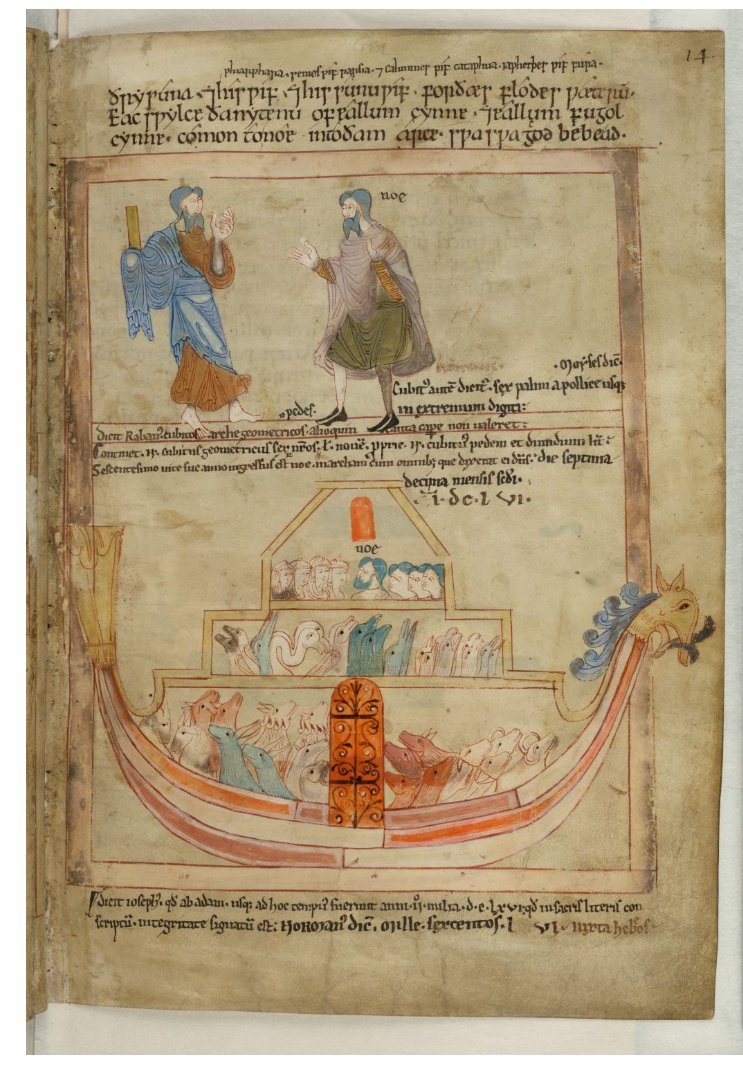 14
ðry suna ⁊ his ƿif ⁊ his suna ƿif. for ðæs flodes ƿæterū.
Eac sƿylce ða nytenu of eallum cynne. ⁊ eallum fugol
cynne. comon to noe into ðam arce. sƿa sƿa god bebead.
noe
Moyses dic̄.
Cubit᷒ autē dicit᷒. sex palmi a pollice usq;
in extremum digiti:
pedes.
dicit Raban᷒. cubitos arche geometricos. alioquin tanta cape non ualeret:
Continet. cubitus geometricus sex nr̄os. cubit᷒ pedem et dimidium
Sescentesimo uite sue anno ingressus est noe. in archam cum omnib; que dixerat ei dn̄s. die septima
decima mensis sedi.
i. dc. l vi.
noe
dicit ioseph᷒. qd̄ ab adam. usq; ad hoc temp᷒ fuerunt anni. ii. milia. d. c. lxvi. qd̄ in sacris literis con
scriptū. integritate signatū est: Honorius dic̄. Mille. sexcentos. l vi. iuxta hebos